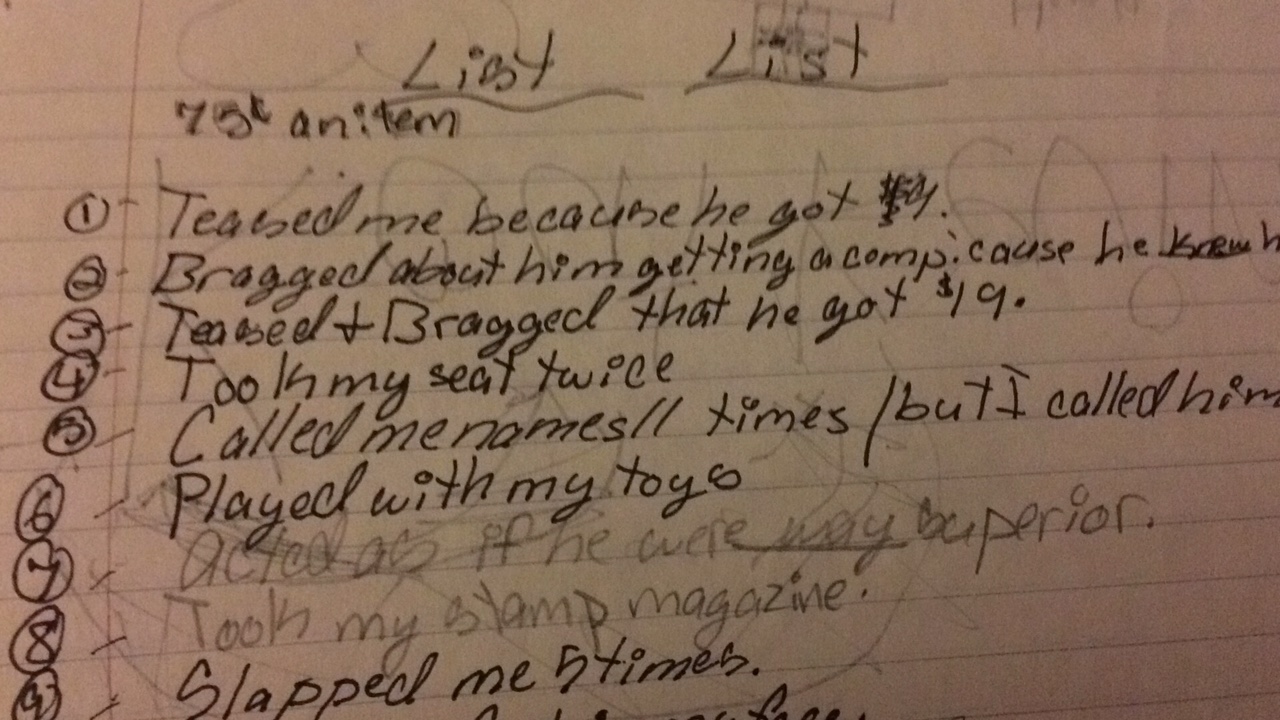 List List
75¢ an item
① - Teased me because he got $9.
② - Bragged about him getting a comp. cause he knew
③ - Teased + Bragged that he got $19.
④ - Took my seat twice
⑤ - Called me names 11 times / but I called him
⑥ - Played with my toys
⑦ - acted as if he were way superior.
⑧ - Took my stamp magazine.
⑨ - Slapped me 5 times.
face.